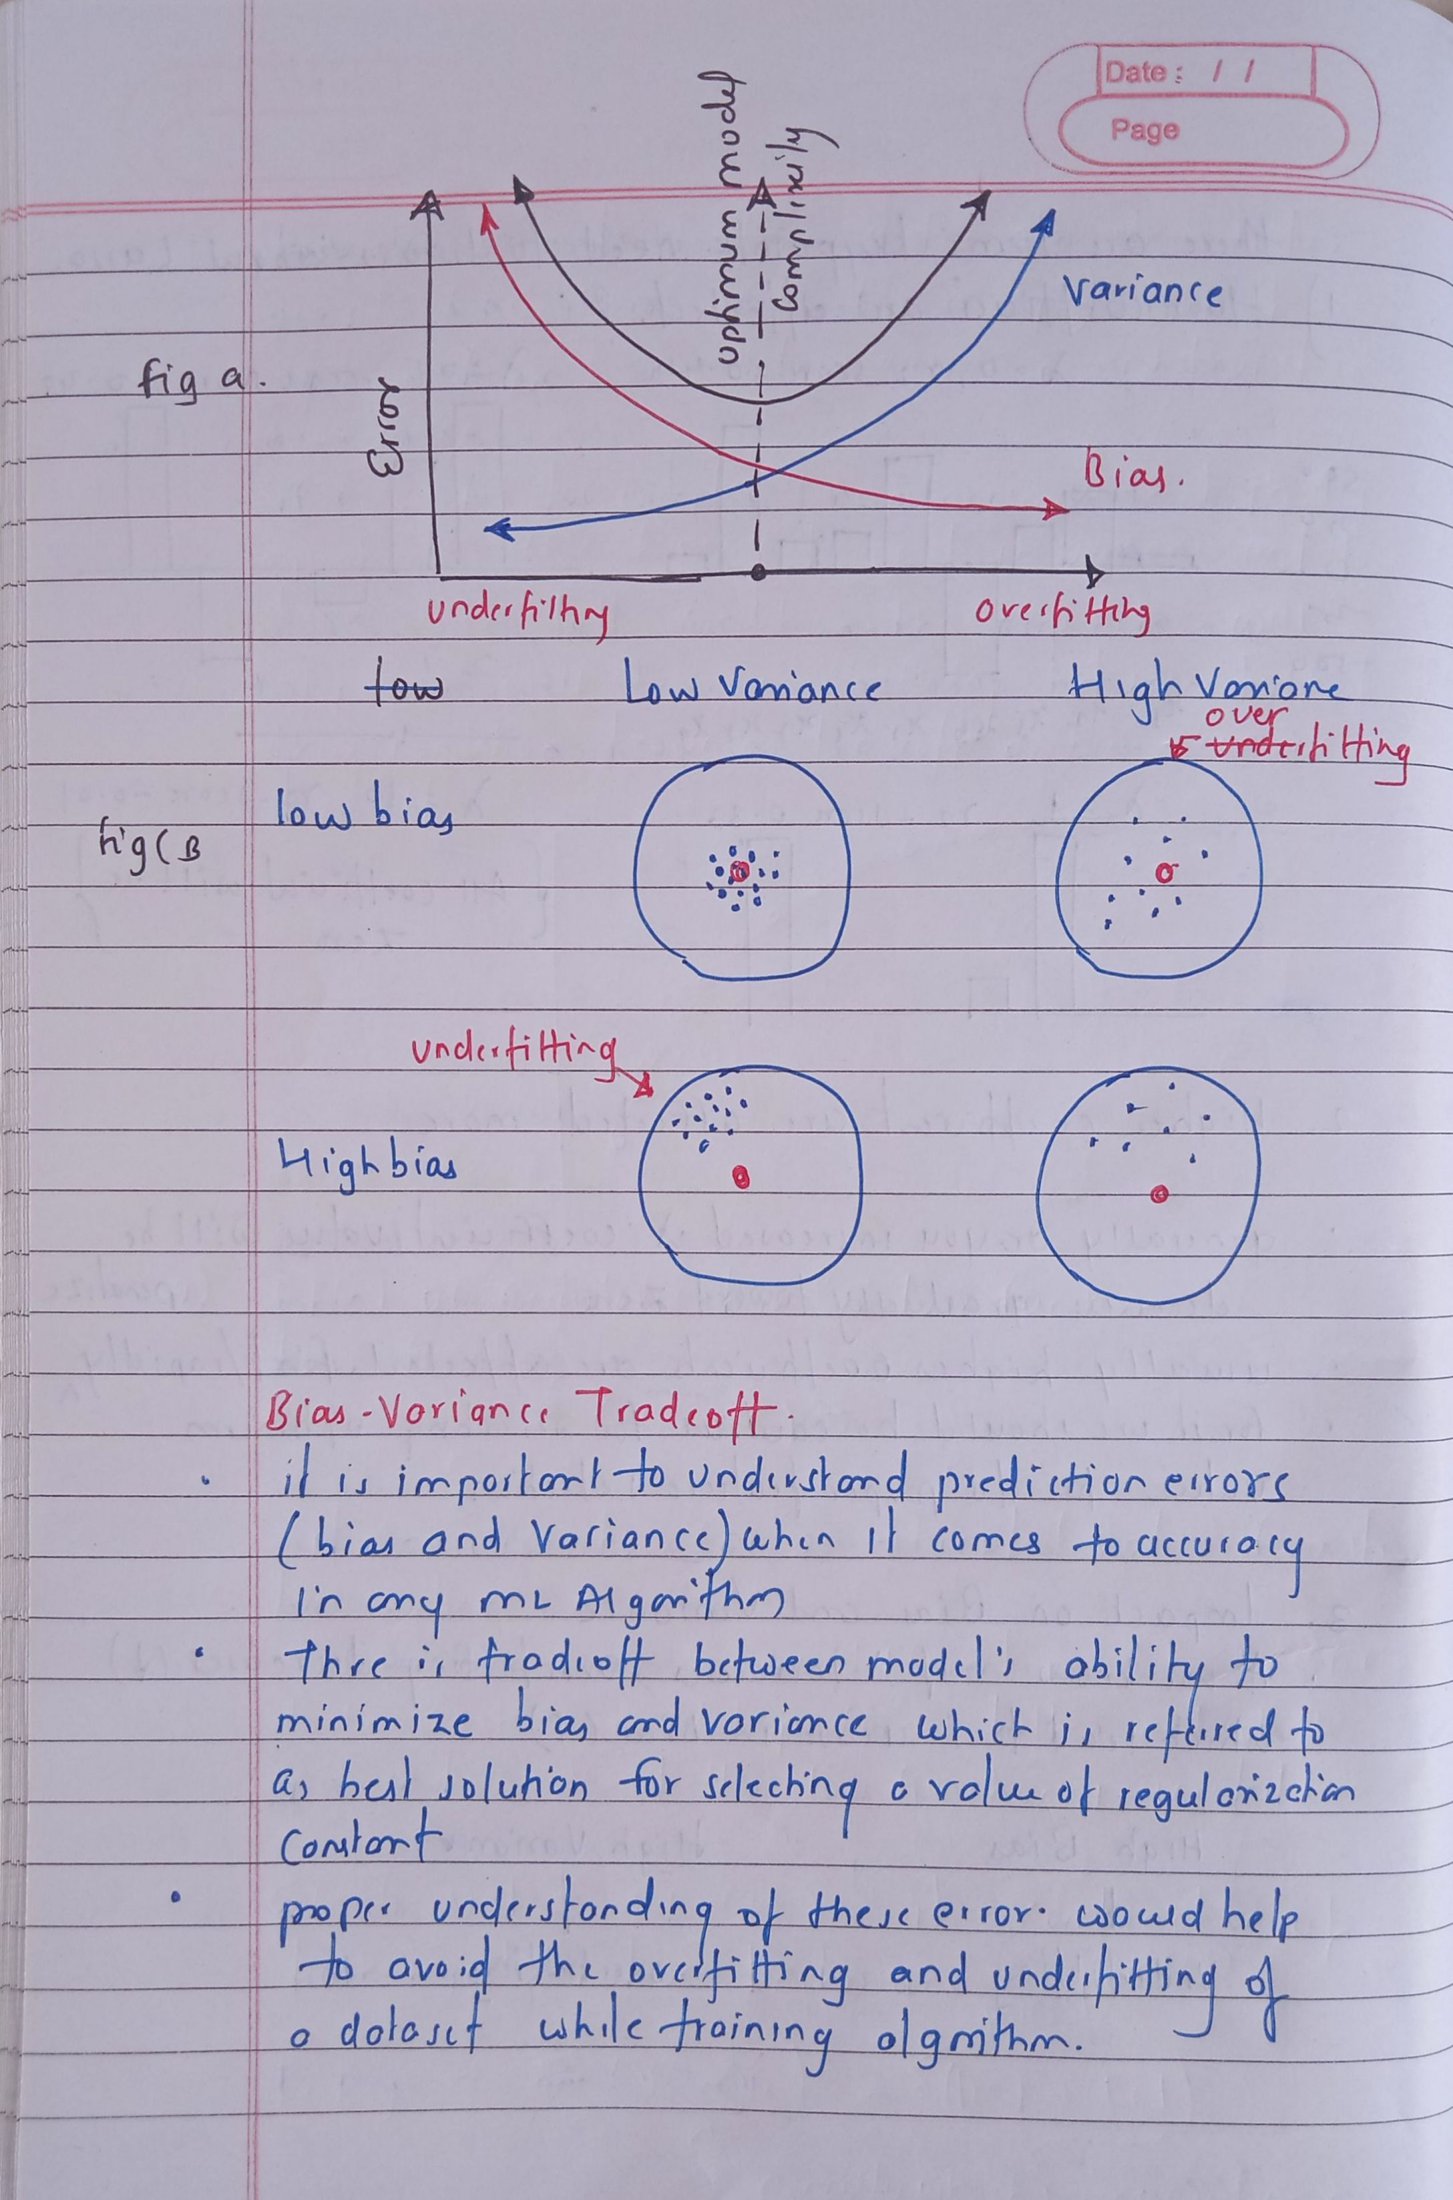 Date : / /
Page
optimum model
complixity
variance
fig a.
Error
Bias.
underfitting
overfitting
low
Low Variance
High Varianc
over
underfitting
low bias
fig(B
underfitting
High bias
Bias-Variance Tradeoff.
• it is important to understand prediction errors
(bias and variance) when it comes to accuracy
in any mL Algorithm
• thre is tradeoff between model's ability to
minimize bias and variance which is referred to
as best solution for selecting a value of regularization
constant
• proper understanding of these error. would help
to avoid the overfitting and underfitting of
a dataset while training algorithm.